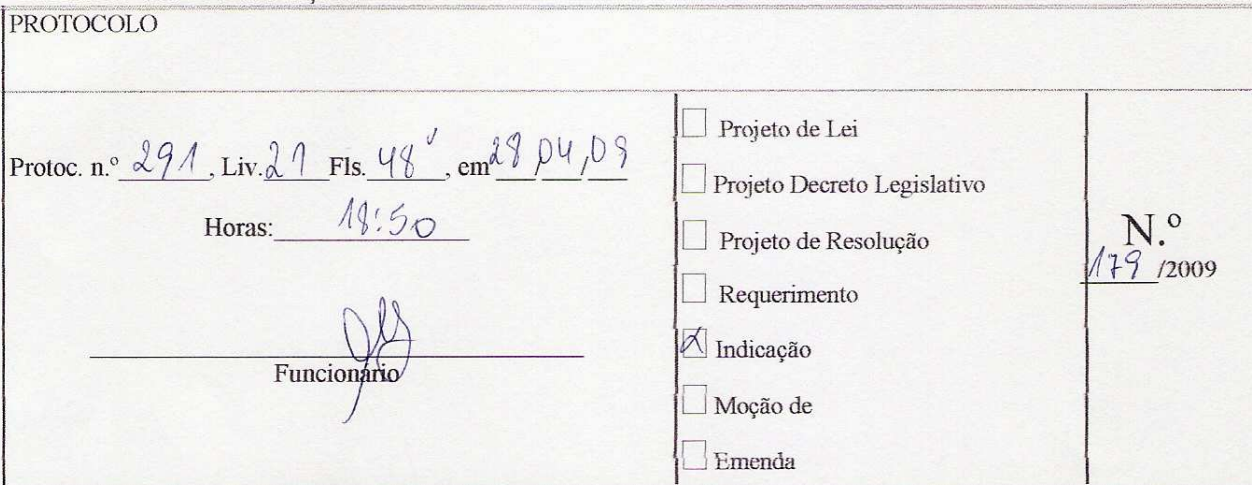 PROTOCOLO
Protoc. n.º 291, Liv. 21 Fls. 48 v, em 28/04/09
Horas: 18:50
Funcionário
Projeto de Lei
Projeto Decreto Legislativo
Projeto de Resolução
Requerimento
X Indicação
Moção de
Emenda
N.º
179 /2009